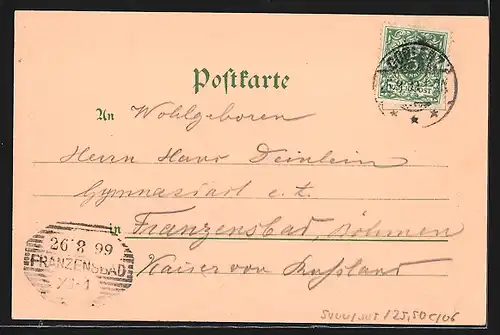 Postkarte
An Wohlgeboren
Herrn Hans Deinlein
Gymnasiast e. t.
in Franzensbad, Böhmen
Kaiser von Rußland
26 8 99
FRANZENSBAD
5